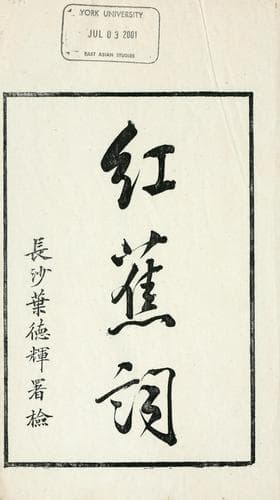 YORK UNIVERSITY
JUL 03 2001
EAST ASIAN STUDIES
紅蕉詞
長沙葉德輝署檢